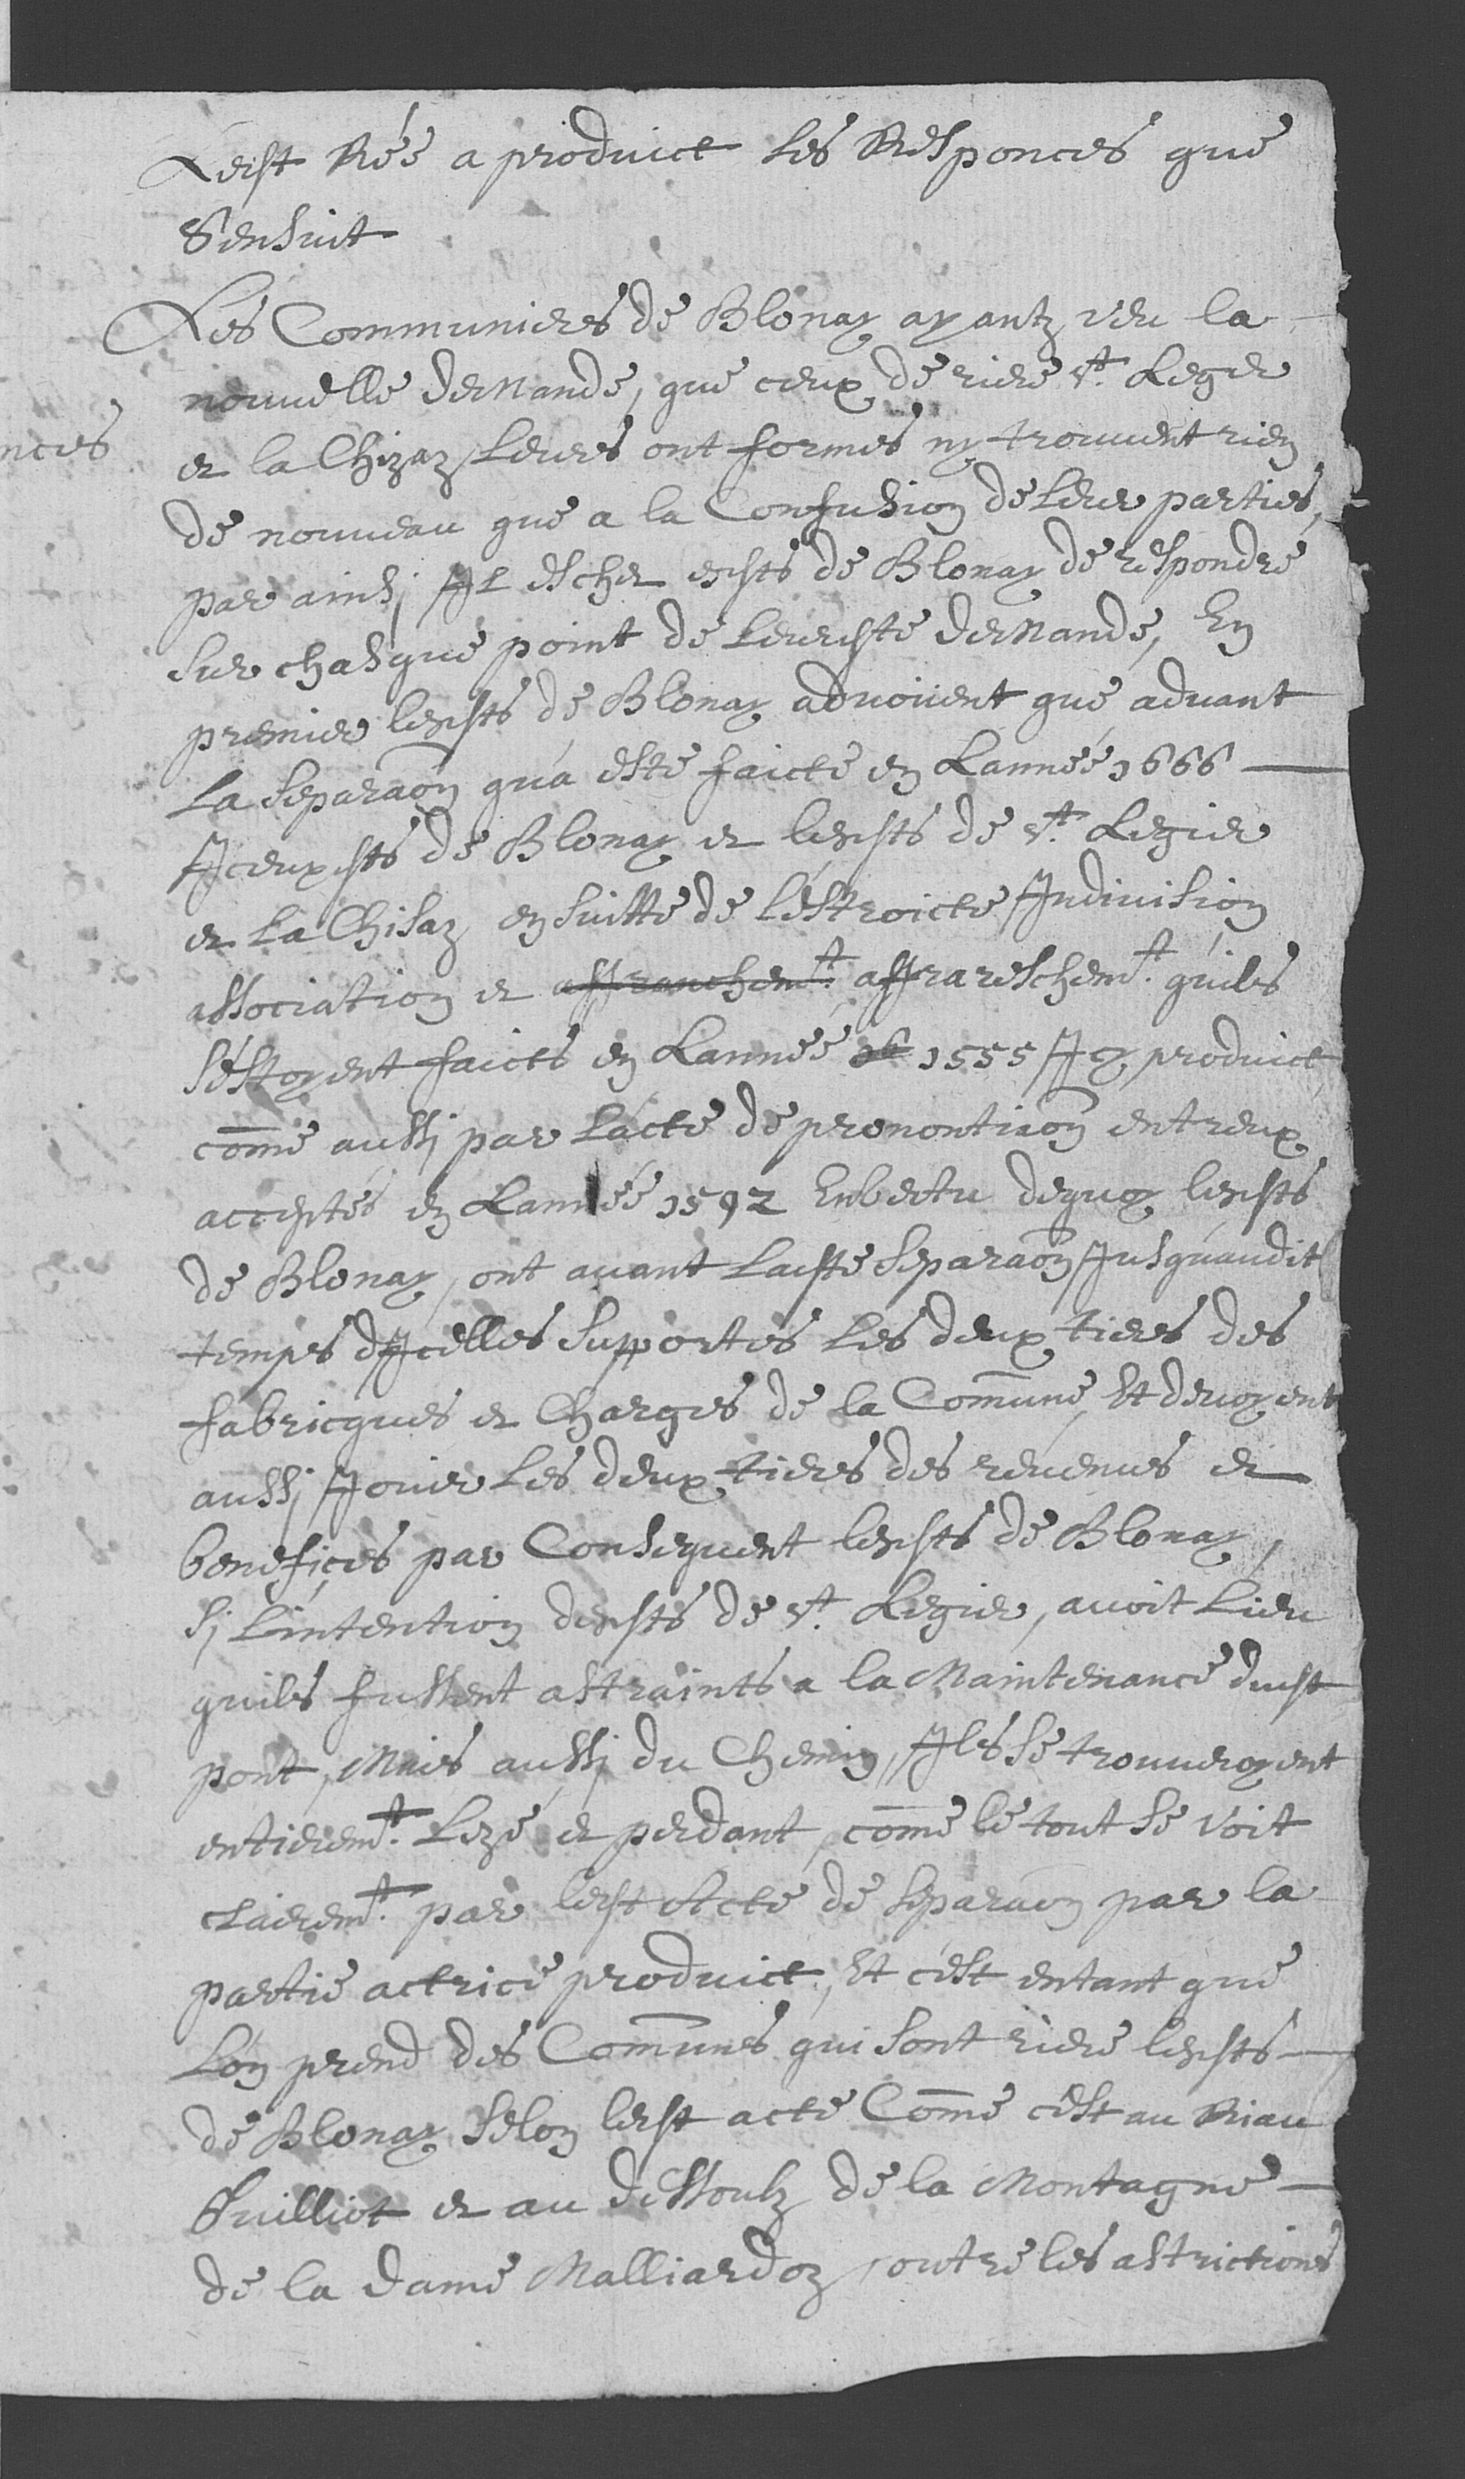 Ledst Réé a produict les Responces que
S'ensuit
Les Communiers de Blonay ayantz veu la
nouuelle demande, que ceux de riere st. Legier
nces
et la Chizaz leurs ont formes ny trouuent rien
de nouueau que a la Confusion de leur parties,
par ainsi Il eschet esdsts de Blonay de respondre
sur chasque point de leurdste demande, En
premier lesdsts de Blonay aduoüent que aduant
La separaõn qu'a esté faicte en Lannéé 1666
Iceuxdsts de Blonay et lesdsts de st. Legier
et La Chisaz ensuitte de léstroicte Indiuision
association et affranchemt. affrareschemt. quils
séstoyent faicts en Lannéé 16 1555 Icy produict
com̃e aussi par lácte de prononti͠aon entreux
acceptés en Lannéé 1592 En vertu dequoy lesdsts
de Blonay, ont auant Ladste Separaõn Iusquaudit
temps dIcelles supportes les deux tiers des
fabricques et Charges de la Com̃une, Et deuoyent
aussi Iouir les deux tiers des reuenus et
benefices par Consequent lesdsts de Blonay,
si L'intention desdsts de st. Legier, auoit Lieu
quils fussent astraints a la Maintenance dudst
pont, Mais aussi du Chemin, Ils se trouueroyent
entieremt. Lezé et perdant, com̃e le tout se voit
clairemt. par ledst Acte de separaõn par la
partie actrice produict, Et c'est entant que
L'on prend des Com̃unes qui sont riere lesdsts
de Blonay selon ledst acte Com̃e c'est au Riau
Guilliot et au dessoubz de la Montagne
de la Dame Malliardoz, outre les astrictions